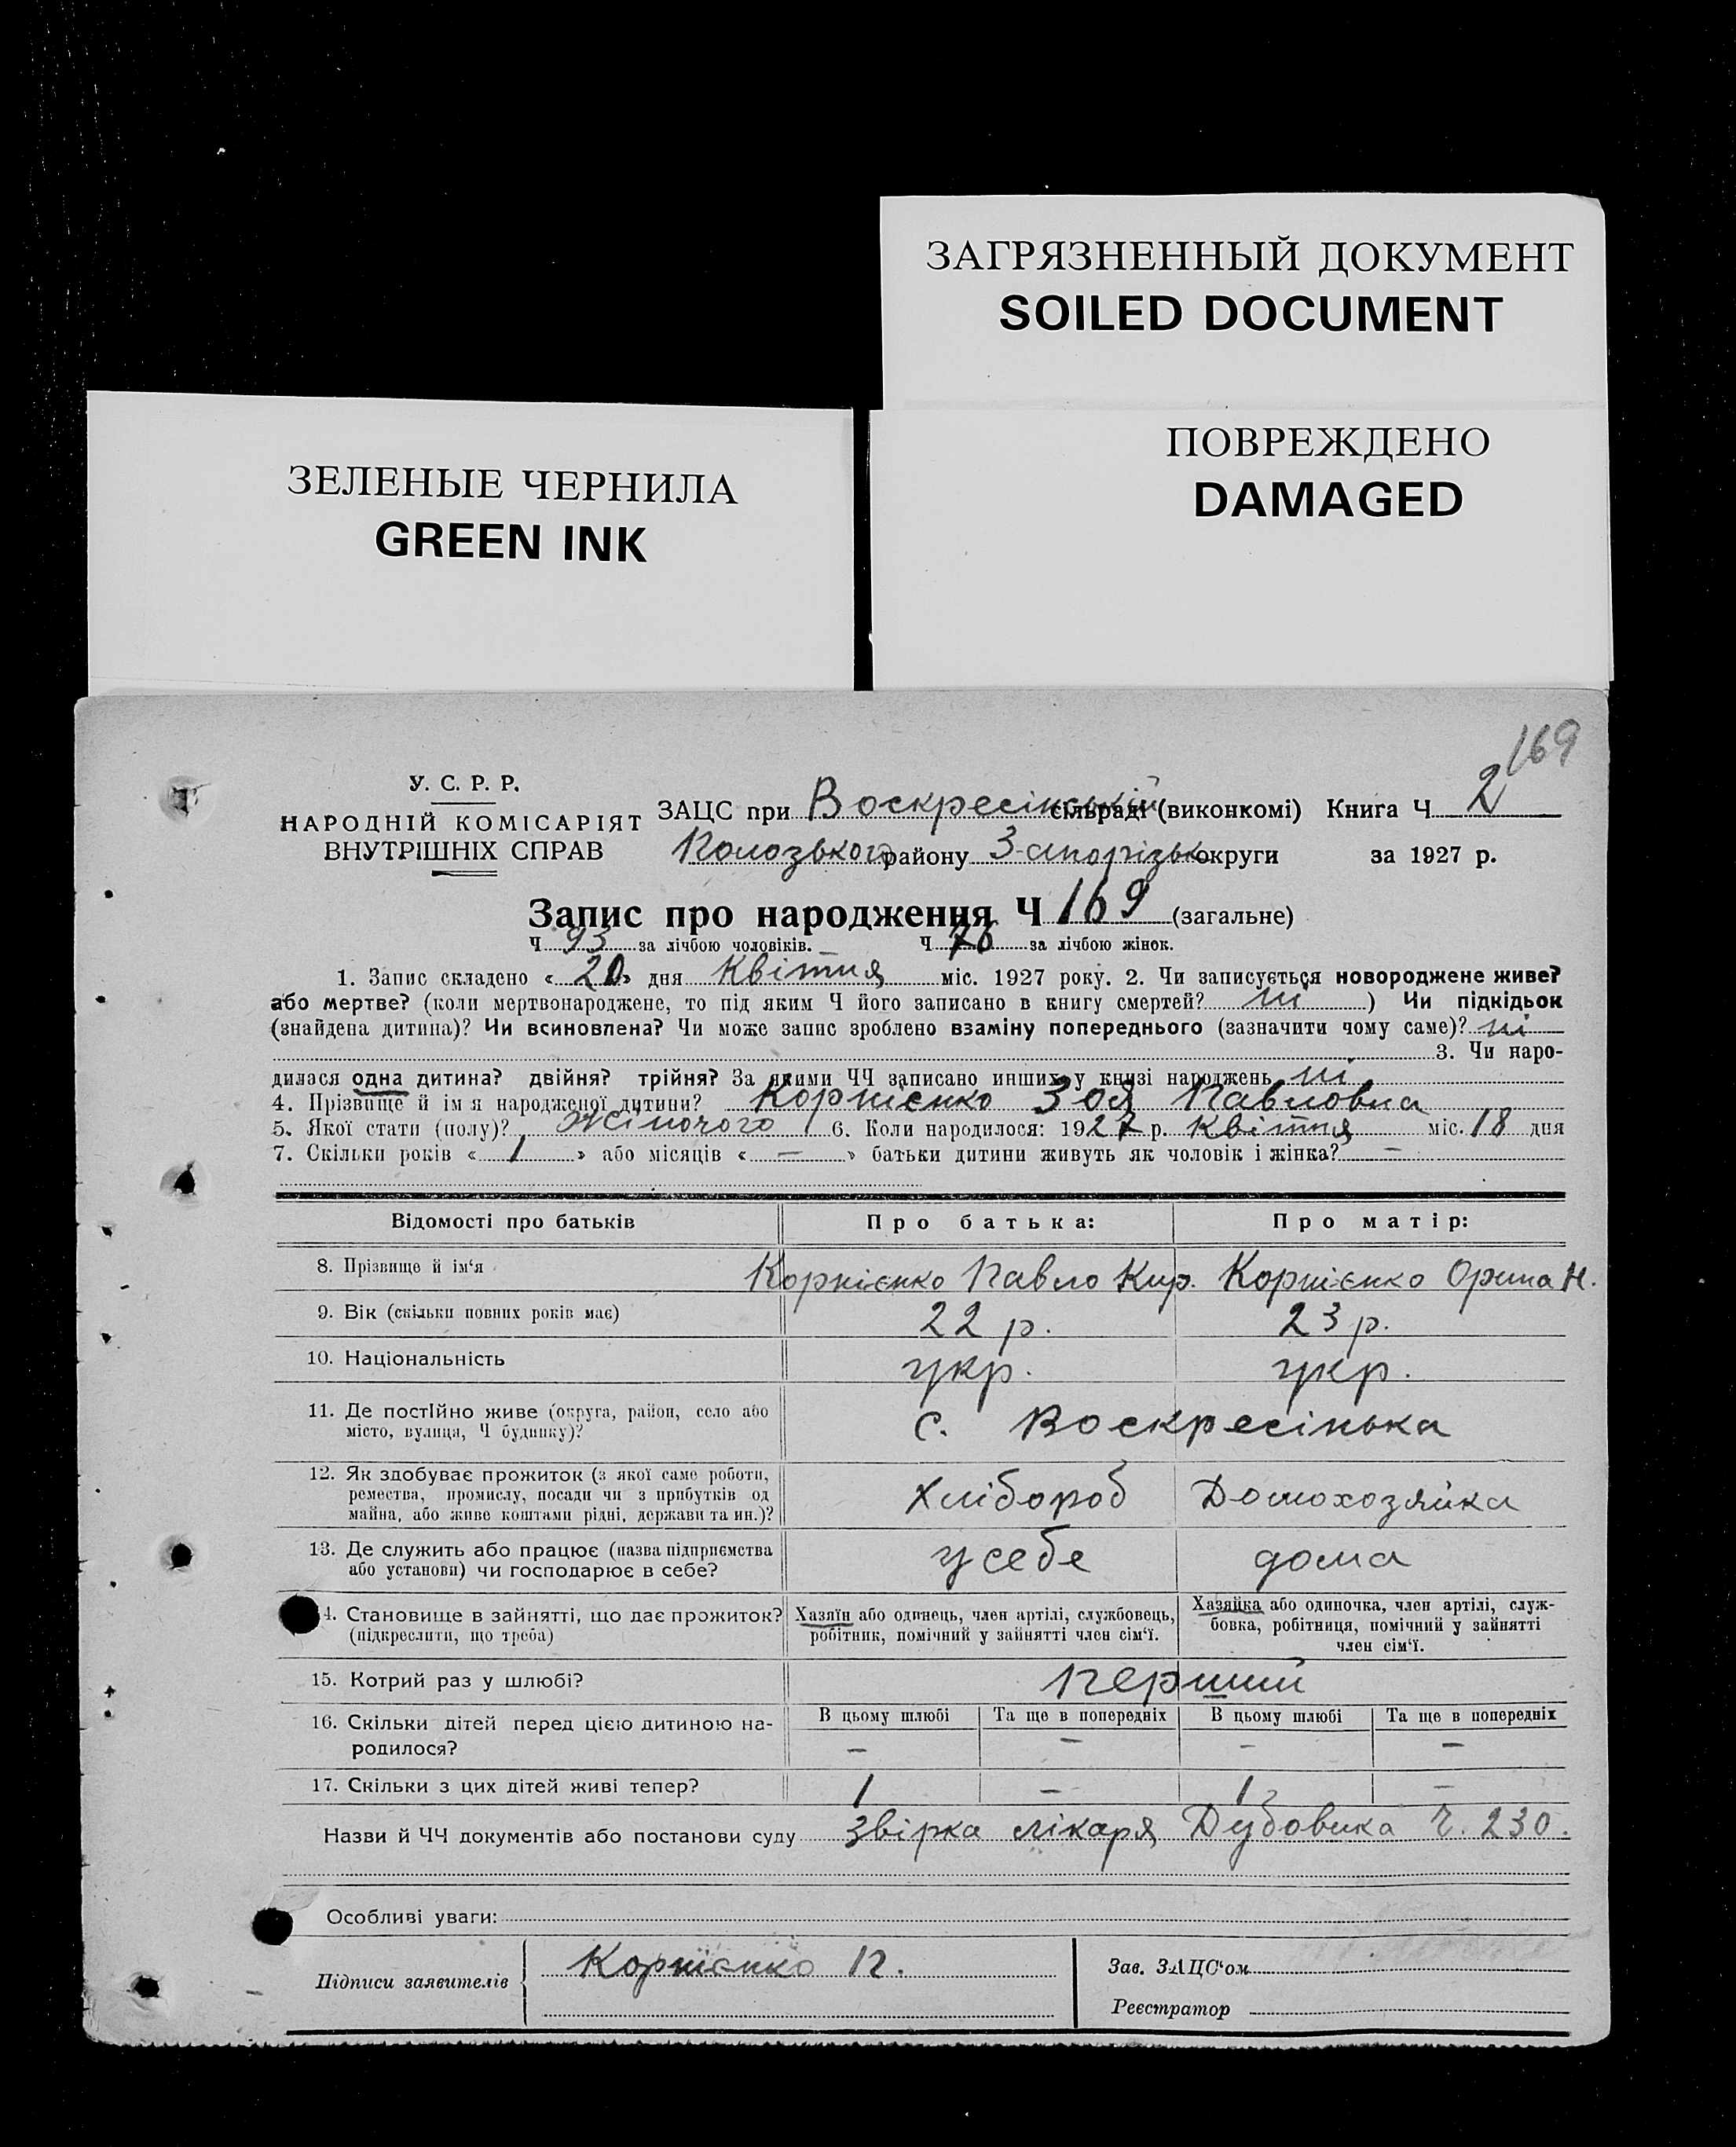 ЗАГРЯЗНЕННЫЙ ДОКУМЕНТ
SOILED DOCUMENT
ЗЕЛЕНЫЕ ЧЕРНИЛА
GREEN INK
ПОВРЕЖДЕНО
DAMAGED
169
У. С. Р. Р.
НАРОДНІЙ КОМІСАРІЯТ
ВНУТРІШНІХ СПРАВ
ЗАЦС при Воскресінській сільраді (виконкомі) Книга Ч 2
району Запорізьк округи за 1927 р.
Запис про народження Ч 169 (загальне)
Ч 93 за лічбою чоловіків. Ч 76 за лічбою жінок.
1. Запис складено « 20 » дня Квітня міс. 1927 року. 2. Чи записується новороджене живе?
або мертве? (коли мертвонароджене, то під яким Ч його записано в книгу смертей? ні ) Чи підкідьок
(знайдена дитина)? Чи всиновлена? Чи може запис зроблено взаміну попереднього (зазначити чому саме)? ні
3. Чи наро-
дилася одна дитина? двійня? трійня? За якими ЧЧ записано инших у книзі народжень ні
4. Прізвище й ім я народженої дитини? Корнієнко Зоя Павловна
5. Якої стати (полу)? Жіночого 6. Коли народилося: 1927 р. Квітня міс. 18 дня
7. Скільки років « 1 » або місяців « — » батьки дитини живуть як чоловік і жінка? —
Відомості про батьків Про батька: Про матір:
8. Прізвище й ім‘я Корнієнко Павло Кир. Корнієнко Орина Н.
9. Вік (скільки повних років має) 22 р. 23 р.
10. Національність укр. укр.
11. Де постійно живе (округа, район, село або
місто, вулиця, Ч будинку)? с. Воскресінька
12. Як здобуває прожиток (з якої саме роботи,
ремества, промислу, посади чи з прибутків од
майна, або живе коштами рідні, держави та ин.)? Хлібороб Домохозяйка
13. Де служить або працює (назва підприємства
або установи) чи господарює в себе? у себе дома
14. Становище в зайнятті, що дає прожиток?
(підкреслити, що треба)
Хазяїн або одинець, член артілі, службовець,
робітник, помічний у зайнятті член сім‘ї.
Хазяйка або одиночка, член артілі, служ-
бовка, робітниця, помічний у зайнятті
член сім‘ї.
15. Котрий раз у шлюбі? Перший
16. Скільки дітей перед цією дитиною на-
родилося?
В цьому шлюбі Та ще в попередніх В цьому шлюбі Та ще в попередніх
— — — —
17. Скільки з цих дітей живі тепер? 1 — 1 —
Назви й ЧЧ документів або постанови суду звірка лікаря Дубовика Ч. 230.
Особливі уваги:
Підписи заявителів Корнієнко П.
Зав. ЗАЦС‘ом
Реєстратор